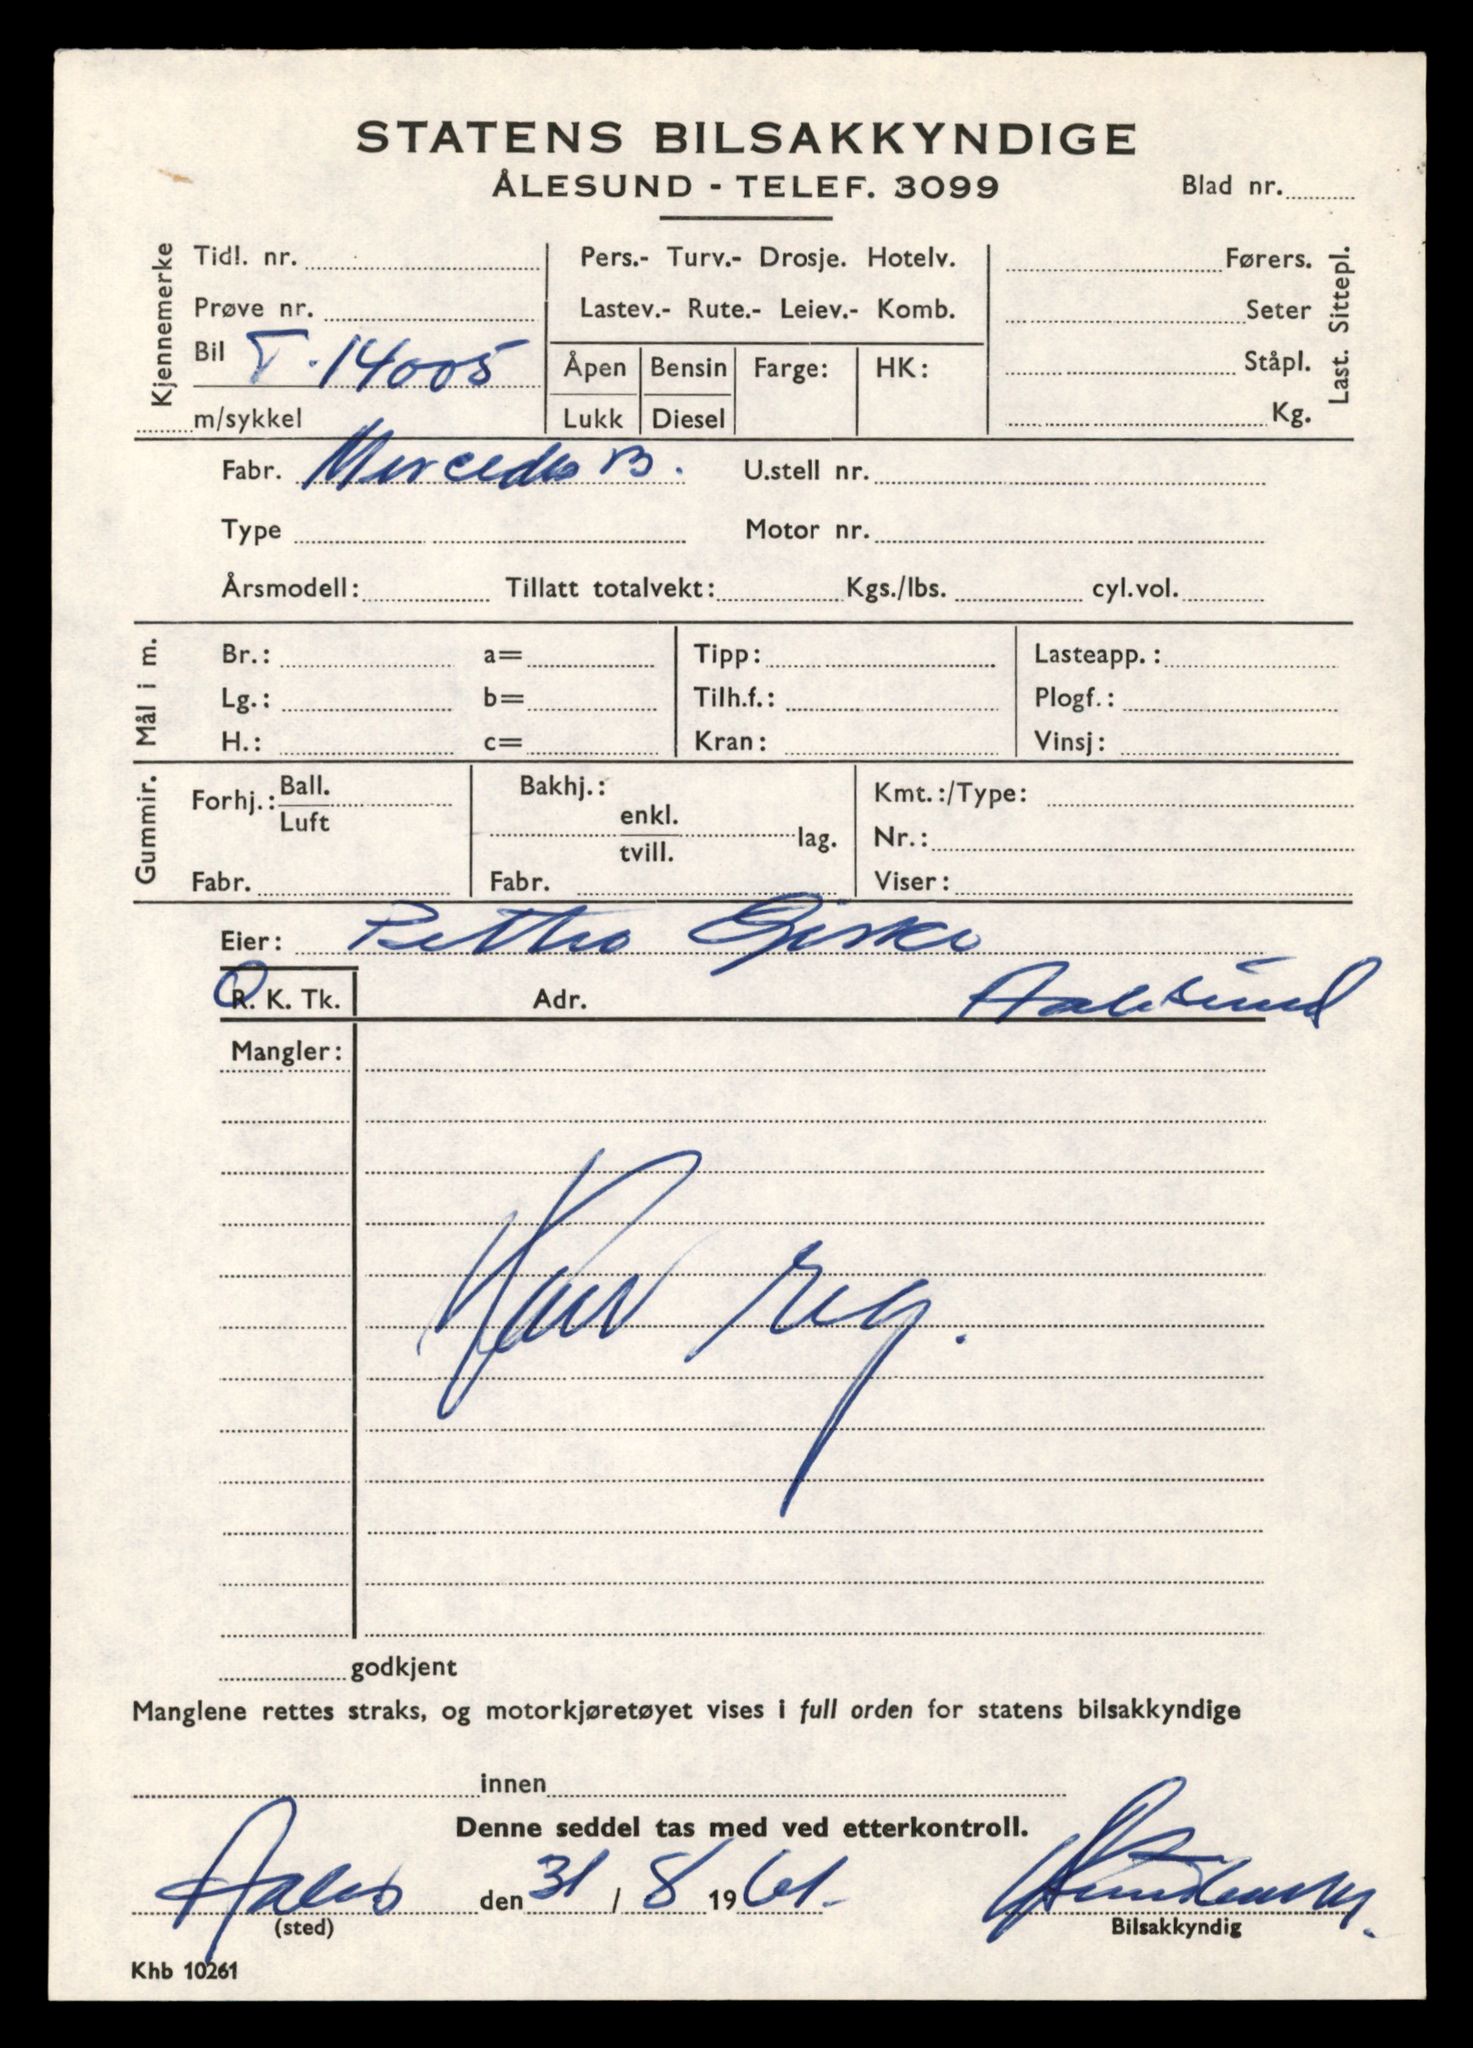 STATENS BILSAKKYNDIGE
ÅLESUND - TELEF. 3099
Blad nr.
Kjennemerke
Tidl. nr.
Prøve nr.
Bil T-14005
m/sykkel
Pers.- Turv.- Drosje. Hotelv.
Lastev.- Rute.- Leiev.- Komb.
Åpen Bensin Farge: HK:
Lukk Diesel
Førers.
Seter
Ståpl.
Kg.
Last. Sittepl.
Fabr. Mercedes B. U.stell nr.
Type Motor nr.
Årsmodell: Tillatt totalvekt: Kgs./lbs. cyl.vol.
Mål i m.
Br.: a= Tipp: Lasteapp.:
Lg.: b= Tilh.f.: Plogf.:
H.: c= Kran: Vinsj:
Gummir.
Forhj.: Ball. Luft
Fabr.
Bakhj.:
enkl.
tvill. lag.
Fabr.
Kmt.:/Type:
Nr.:
Viser:
Eier:
R. K. Tk. Adr. Aalesund
Mangler:
reg.
godkjent
Manglene rettes straks, og motorkjøretøyet vises i full orden for statens bilsakkyndige
innen
Denne seddel tas med ved etterkontroll.
den 31/8 1961.
(sted) Bilsakkyndig
Khb 10261